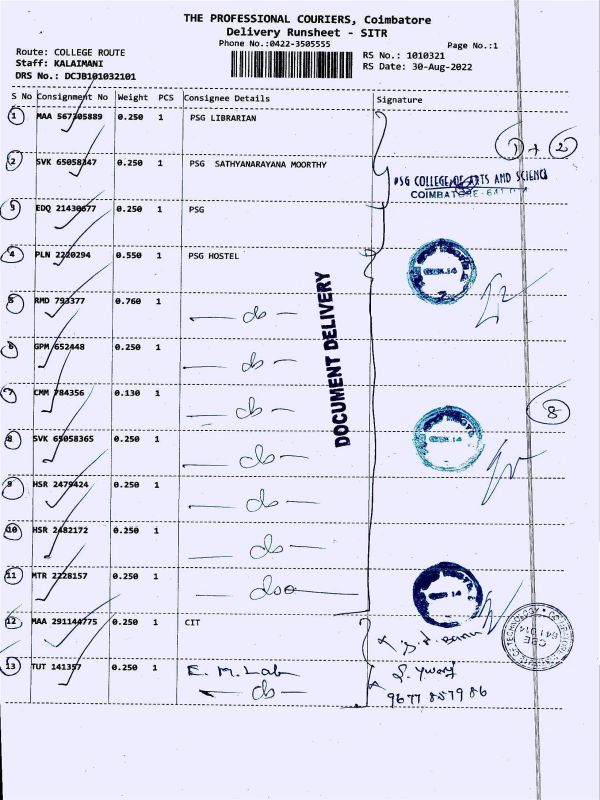 THE PROFESSIONAL COURIERS, Coimbatore
Delivery Runsheet - SITR
Phone No.:0422-3505555
Page No.:1
Route: COLLEGE ROUTE
RS No.: 1010321
Staff: KALAIMANI
RS Date: 30-Aug-2022
DRS No.: DCJB101032101
S No Consignment No Weight PCS Consignee Details Signature
1 MAA 567305889 0.250 1 PSG LIBRARIAN
1 + 2
2 SVK 65058347 0.250 1 PSG SATHYANARAYANA MOORTHY
PSG COLLEGE OF ARTS AND SCIENCE
COIMBATORE-641 014
3 EDQ 21430677 0.250 1 PSG
4 PLN 2220294 0.550 1 PSG HOSTEL
5 RMD 793377 0.760 1 do
6 GPM 652448 0.250 1 do
7 CMM 784356 0.130 1 do
8
8 SVK 65058365 0.250 1 do
9 HSR 2479424 0.250 1 do
10 HSR 2482172 0.250 1 do
11 MTR 2228157 0.250 1 do
DOCUMENT DELIVERY
12 MAA 291144775 0.250 1 CIT
CBE
641 014
13 TUT 141357 0.250 1 E. M. Lab
do
9677857986